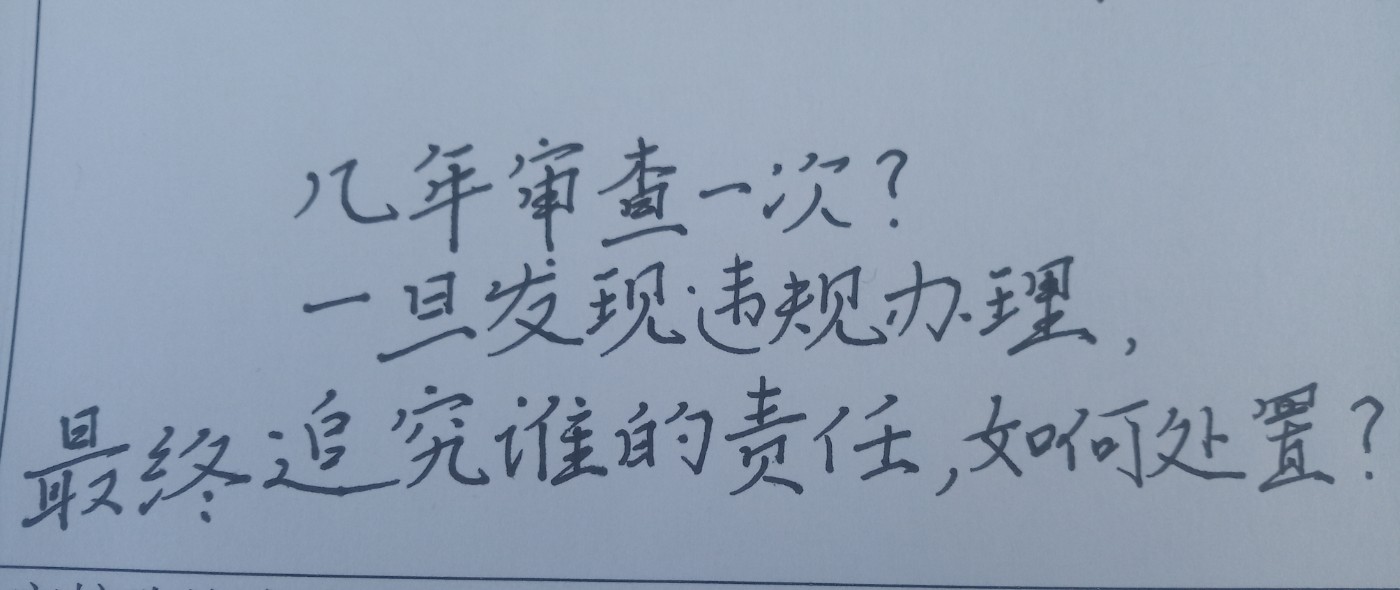 几年审查一次?
一旦发现违规办理,
最终追究谁的责任,如何处置?